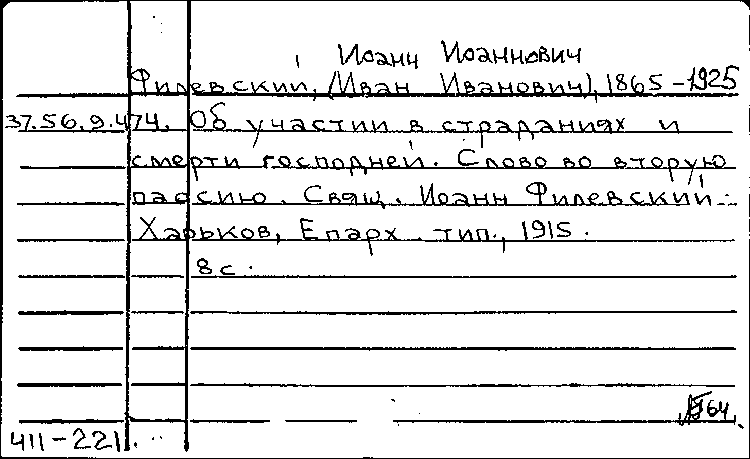 Иоанн Иоаннович
Филевский, (Иван Иванович), 1865-1925
37.56.9.474. Об участии в страданиях и
смерти господней. Слово во вторую
пассию. Свящ. Иоанн Филевский.
Харьков, Епарх. тип., 1915.
8 с.
64
411-221.